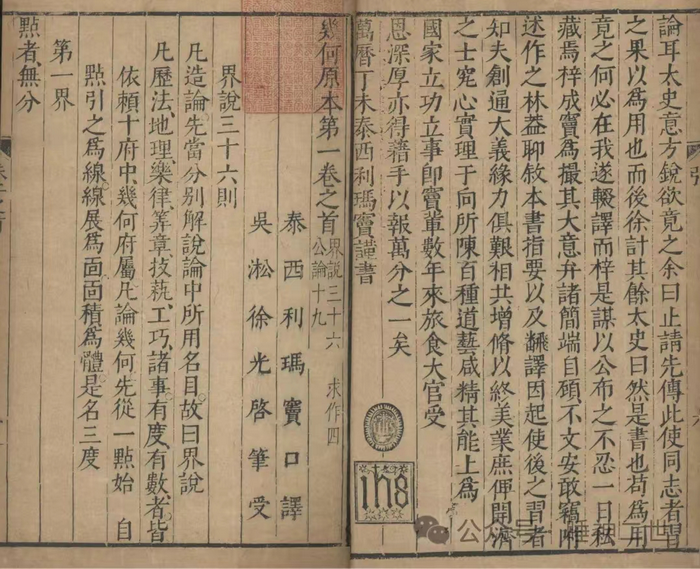 論耳太史意方銳欲竟之余曰止請先傳此使同志者習
之果以為用也而後徐計其餘太史曰然是書也苟為用
竟之何必在我遂輟譯而梓是謀以公布之不忍一日私
藏焉梓成竇為撮其大意弁諸簡端自顧不文安敢竊附
述作之林葢聊敘本書指要以及飜譯因起使後之習者
知夫創通大義緣力俱艱相共增脩以終美業庶俾開濟
之士究心實理于向所陳百種道藝咸精其能上為
國家立功立事即竇輩數年來旅食大官受
恩深厚亦得藉手以報萬分之一矣
萬曆丁未泰西利瑪竇謹書
ihs
幾何原本第一卷之首 界說三十六 公論十九 求作四
泰西利瑪竇口譯
吳淞徐光啓筆受
界說三十六則
凡造論先當分別解說論中所用名目故曰界說
凡歷法、地理、樂律、筭章、技藝、工巧、諸事、有度、有數、者皆
依賴十府中、幾何府屬凡論幾何先從一點始 自
點引之為線線展為面面積為體、是名三度
第一界
點者、無分
公众号